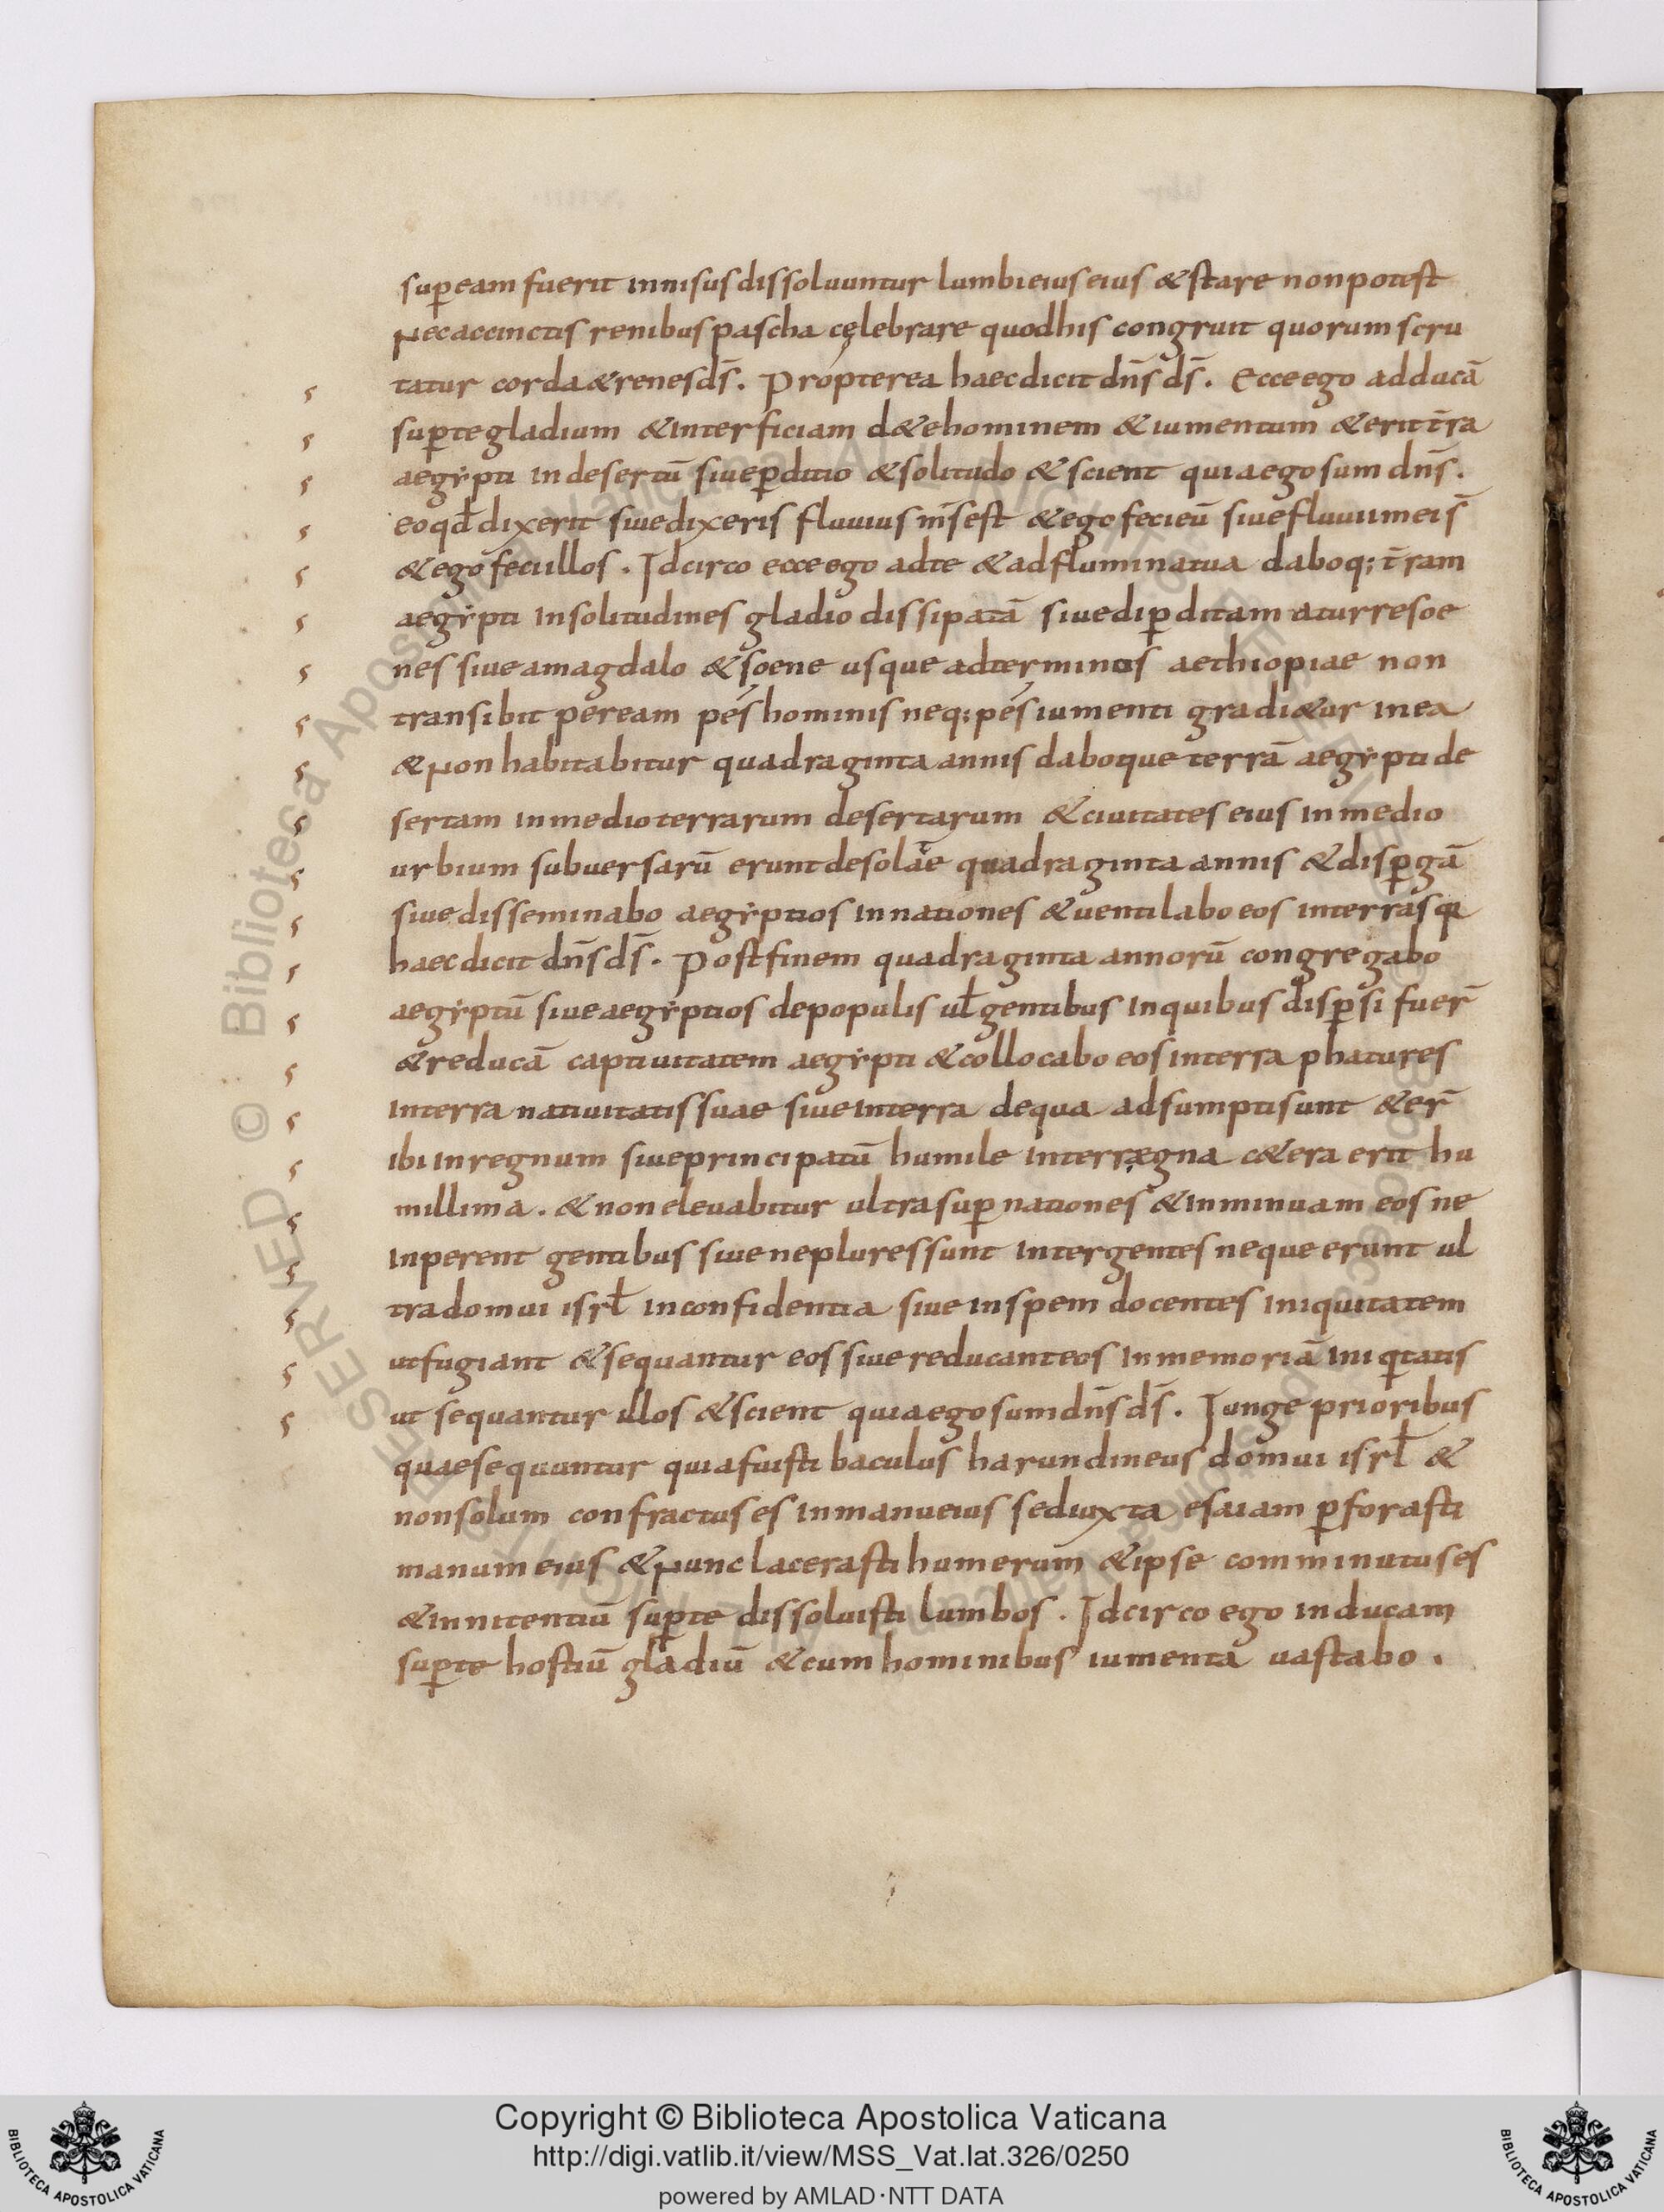 sup̱eam fuerit innisus dissoluuntur lumbi eius eius & stare non potest
nec accinctis renibus pascha cęlebrare quod his congruit quorum scru
tatur corda & renes d̄s. Propterea haec dicit dn̄s d̄s. Ecce ego adducā
sup̱ te gladium & interficiam d&e hominem & iumentum & erit t̄ra
aegẏpti in desertū siue p̱ditio & solitudo & scient quia ego sum dn̄s.
eo qđ dixerit siue dixeris fluuius m̄s est & ego feci eū siue fluuii mei s̄
& ego feci illos. Idcirco ecce ego ad te & ad flumina tua daboq; t̄ram
aegẏpti in solitudines gladio dissipatā siue disp̱ditam a turre soe
nes siue a magdalo & soene usque ad terminos aethiopiae non
transibit per eam pes hominis neq; pes iumenti gradi&ur in ea
& non habitabitur quadraginta annis daboque terrā aegẏpti de
sertam in medio terrarum desertarum & ciuitates eius in medio
urbium subuersarū erunt desolatae quadraginta annis & disp̱gā
siue disseminabo aegẏptios in nationes & uentilabo eos in terras q
haec dicit dn̄s d̄s. Post finem quadraginta annorū congregabo
aegẏptū siue aegẏptios de populis uł gentibus in quibus disp̱si fuer̄
& reducā captiuitatem aegẏpti & collocabo eos in terra phatures
in terra natiuitatis suae siue in terra de qua adsumpti sunt & er̄
ibi in regnum siue principatū humile inter regna c&era erit hu
millima. & non eleuabitur ultra sup̱ nationes & inminuam eos ne
inperent gentibus siue ne plures sunt inter gentes neque erunt ul
tra domui isrł in confidentia siue in spem docentes iniquitatem
ut fugiant & sequantur eos siue reducant eos in memoriā iniqtatis
ut sequantur illos & scient quia ego sum dn̄s d̄s. Iunge prioribus
quae sequuntur quia fuisti baculus harundineus domui isrł &
non solum confractus es in manu eius sed iuxta esaiam p̱forasti
manum eius & nunc lacerasti humerum & ipse comminutus es
& innitentiū sup̱ te dissoluisti lumbos. Idcirco ego inducam
sup̱ te hostiū gladiū & cum hominibus iumenta uastabo.
Copyright © Biblioteca Apostolica Vaticana
http://digi.vatlib.it/view/MSS_Vat.lat.326/0250
powered by AMLAD·NTT DATA
BIBLIOTECA APOSTOLICA VATICANA
BIBLIOTECA APOSTOLICA VATICANA